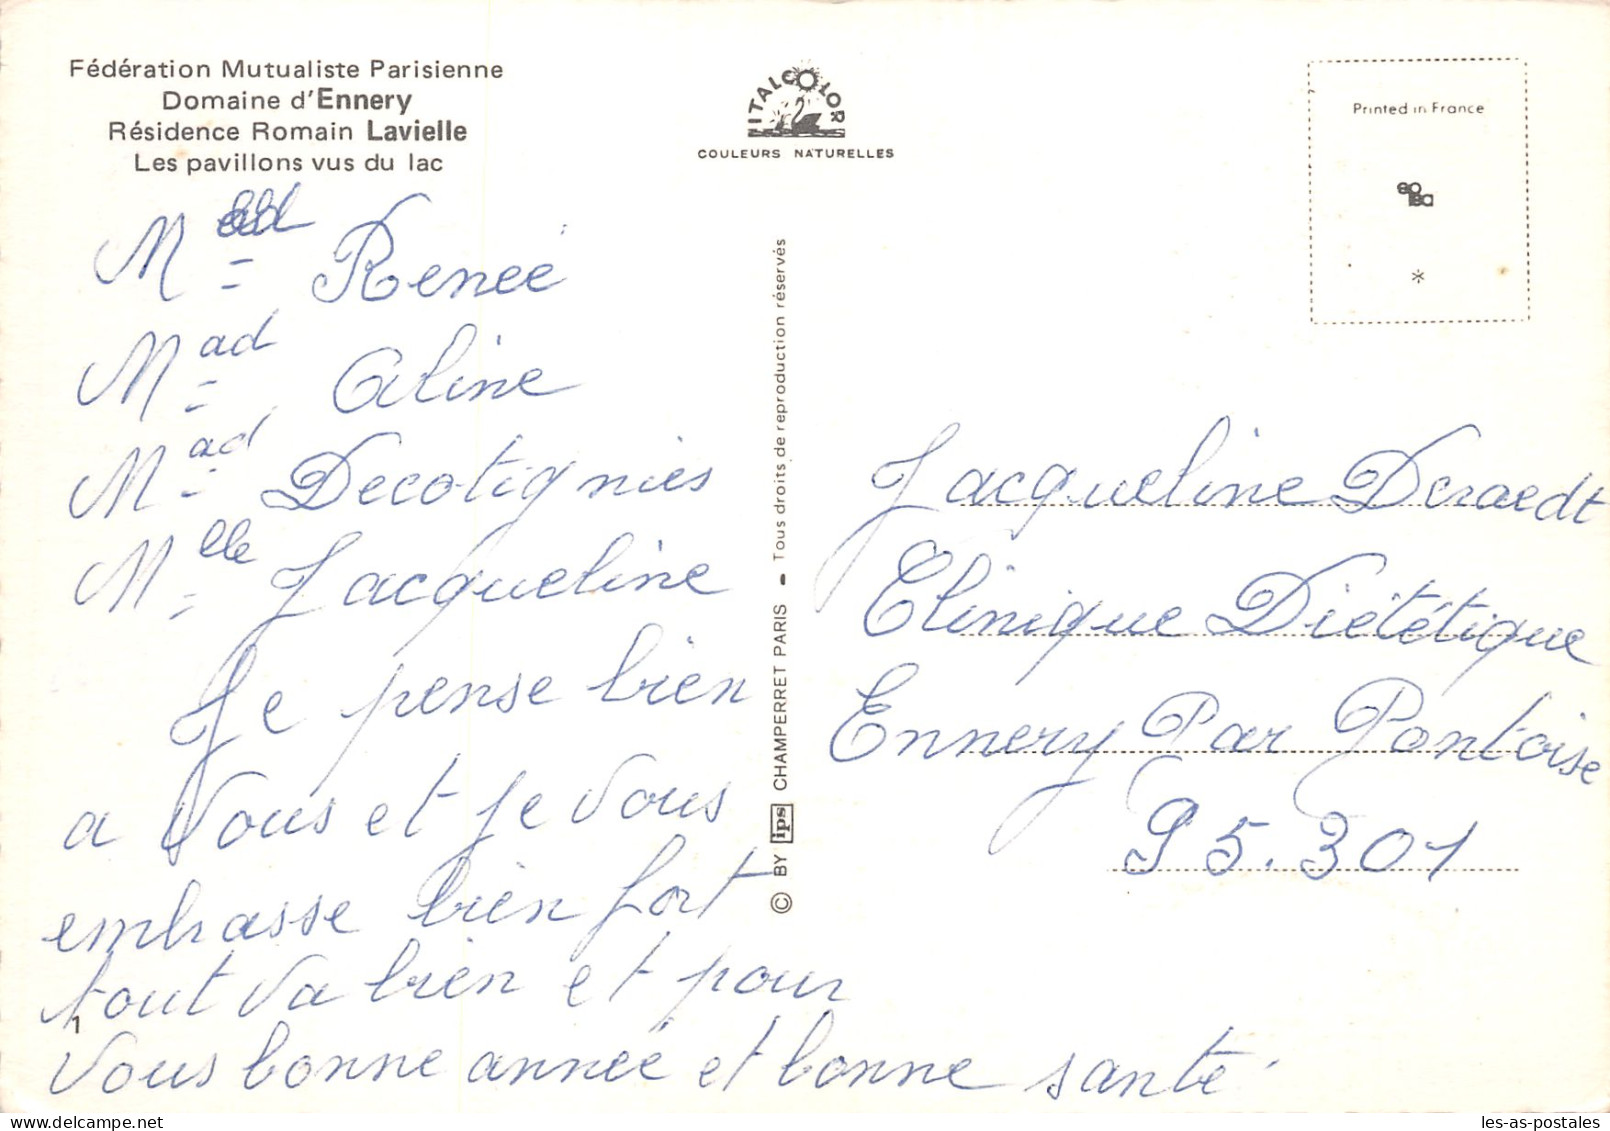 Fédération Mutualiste Parisienne
Domaine d'Ennery
Résidence Romain Lavielle
Les pavillons vus du lac
ITALCOLOR
COULEURS NATURELLES
Printed in France
*
Mad Renée
Mad Aline
Mad Decotignies
Mlle Jacqueline
Je pense bien
a vous et je vous
embrasse bien fort
tout va bien et pour
vous bonne année et bonne santé.
1
© BY ips CHAMPERRET PARIS - Tous droits de reproduction réservés
Jacqueline Deraedt
Clinique Diététique
Ennery Par Pontoise
95.301
les-as-postales